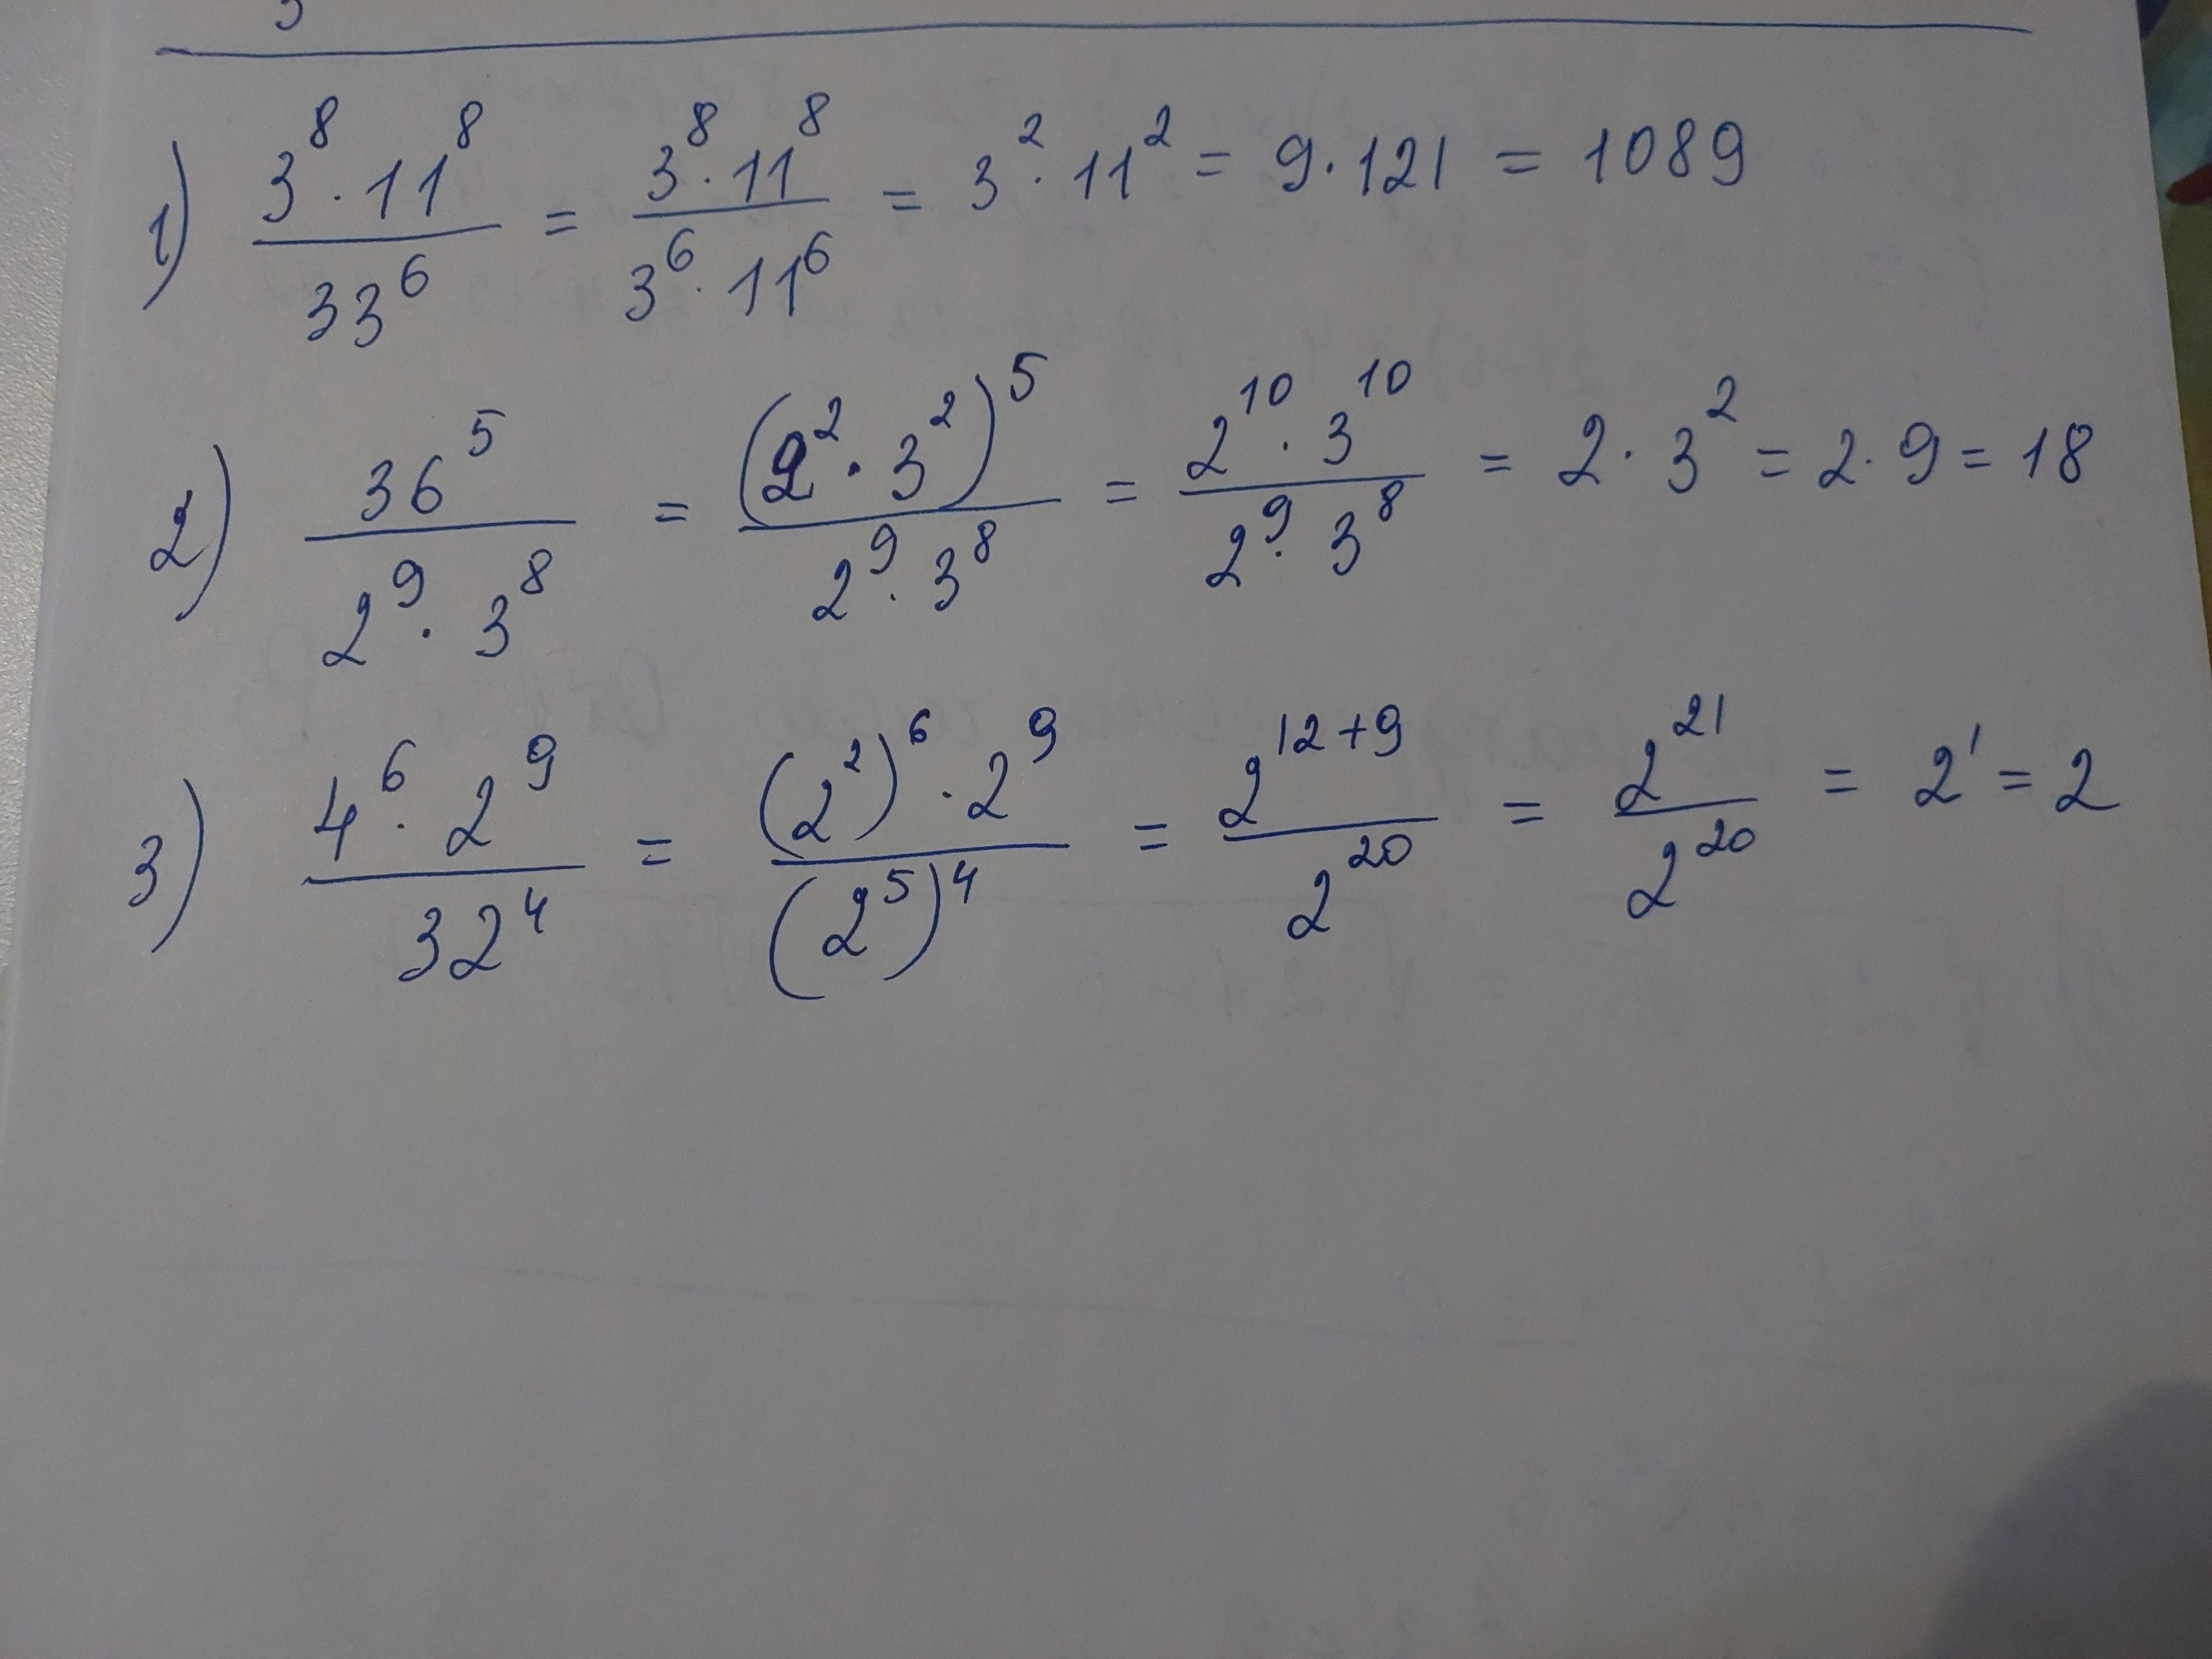 1) 3^8 · 11^8 / 33^6 = 3^8 · 11^8 / 3^6 · 11^6 = 3^2 · 11^2 = 9 · 121 = 1089
2) 36^5 / 2^9 · 3^8 = (2^2 · 3^2)^5 / 2^9 · 3^8 = 2^10 · 3^10 / 2^9 · 3^8 = 2 · 3^2 = 2 · 9 = 18
3) 4^6 · 2^9 / 32^4 = (2^2)^6 · 2^9 / (2^5)^4 = 2^12+9 / 2^20 = 2^21 / 2^20 = 2^1 = 2